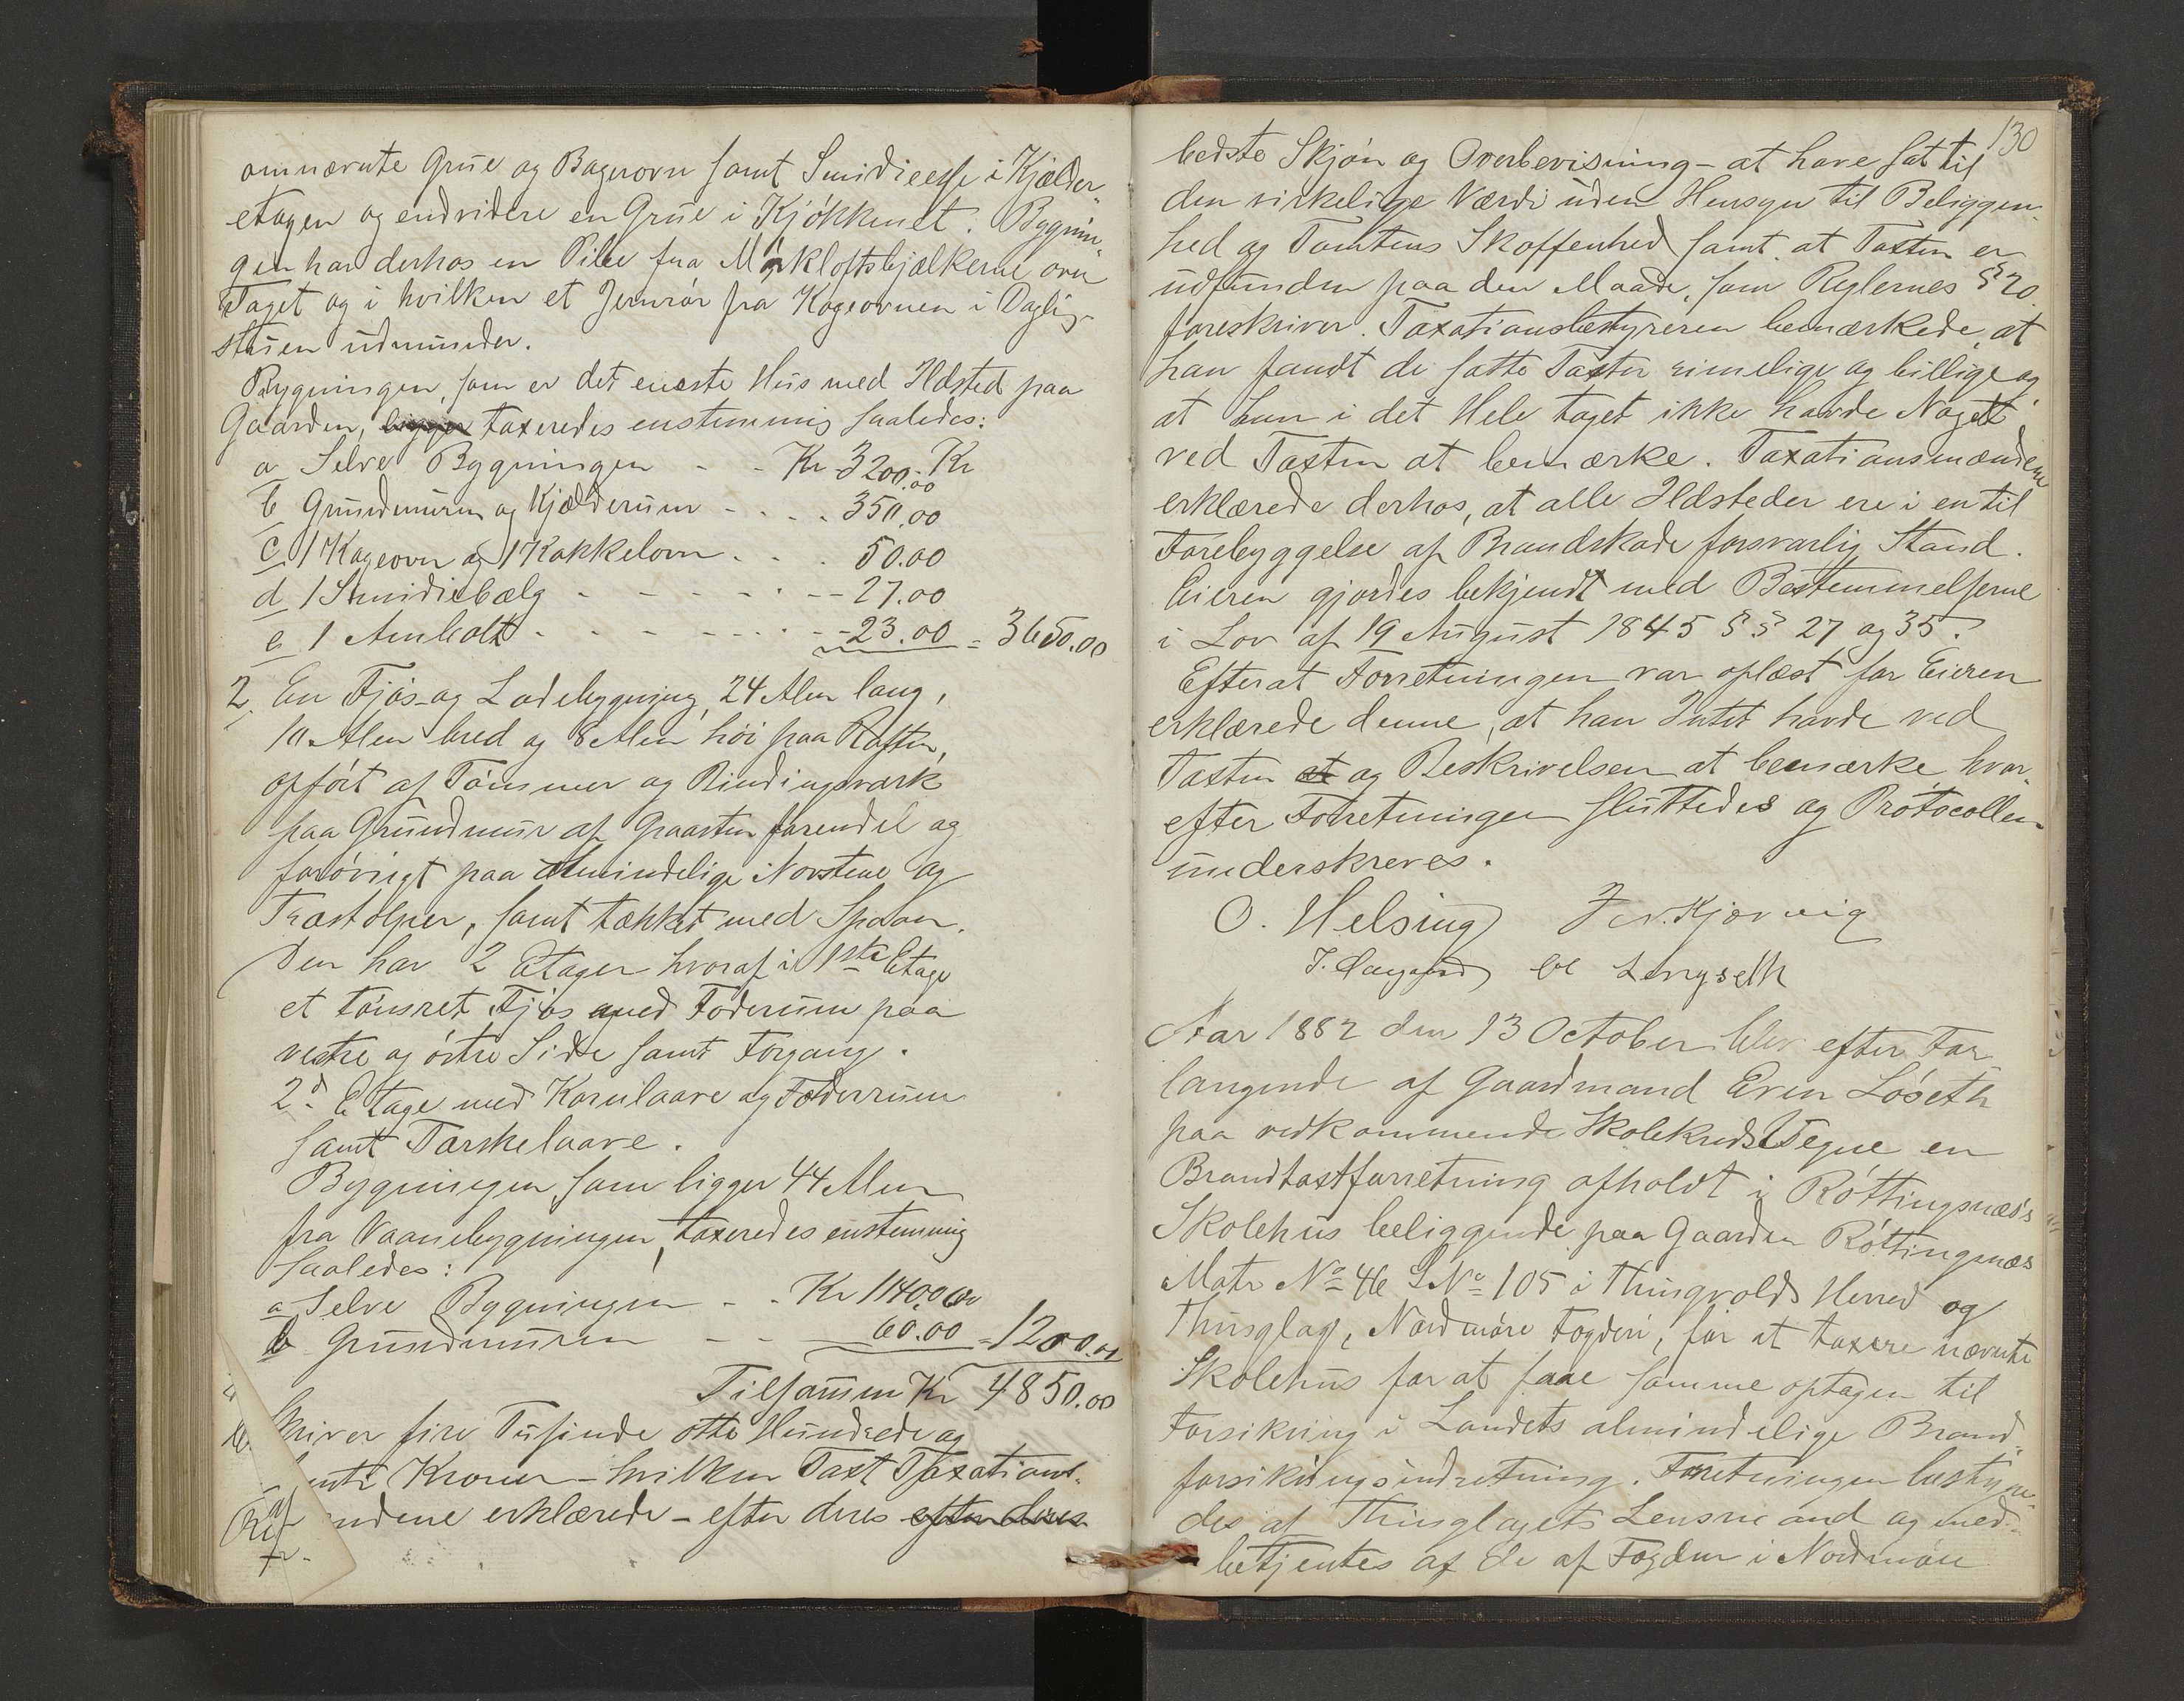 omnævnte Grue og Bagerovn samt Smidieesse i Kjælder-
etagen og endvidere en Grue i Kjøkkenet. Bygnin-
gen har derhos en Pibe fra Mørkloftsbjælkerne over
Taget og i hvilken et Jernrør fra Kogeovnen i Daglig-
stuen udmunder.
Bygningen, som er det eneste Hus med Ildsted paa
Gaarden, ligger taxeredes enstemmig saaledes:
a Selve Bygningen - - Kr 3200.00 Kr
b Grundmuren og Kjælderum - - - - 350.00
c 1 Kogeovn og 1 Kakkelovn - - - 50.00
d 1 Smidiebælg - - - - - - 27.00
e 1 Ambolt - - - - - - 23.00 = 3650.00
2. En Fjøs- og Ladebygning, 24 Alen lang,
10 Alen bred og 8 Alen høi paa Røsten,
opført af Tømmer og Bindingsværk
paa Grundmur af Graasten forendel og
forøvrigt paa almindelige Novstene og
Træstolper, samt tækket med Spaan.
Den har 2 Etager hvoraf i 1ste Etage
et tømret Fjøs med Foderum paa
vestre og østre Side samt Forgang.
2d Etage med Kornlaave og Foderrum
samt Tærskelaave.
Bygningen som ligger 44 Alen
fra Vaanebygningen, taxeredes enstemmig
saaledes:
a Selve Bygningen - - Kr 1140.00
b Grundmuren - - 60.00 = 1200.00
Tilsammen Kr 4850.00
skriver fire Tusinde otte Hundrede og
femti Kroner - hvilken Taxt Taxations-
mændene erklærede - efter deres efter deres
130
bedste Skjøn og Overbevisning - at have sat til
den virkelige Værdi uden Hensyn til Beliggen-
hed og Tomtens Skaffenhed samt at Taxten er
udfunden paa den Maade, som Reglernes § 20
foreskriver. Taxationsbestyreren bemærkede, at
han fandt de satte Taxter rimelige og billige og
at han i det Hele taget ikke havde Noget
ved Taxten at bemærke. Taxationsmændene
erklærede derhos, at alle Ildsteder ere i en til
Forebyggelse af Brandskade forsvarlig Stand.
Eieren gjordes bekjendt med Bestemmelserne
i Lov af 19 August 1845 §§ 27 og 35.
Efterat Forretningen var oplæst for Eieren
erklærede denne, at han Intet havde ved
Taxten at og Beskrivelsen at bemærke, hvor-
efter Forretningen sluttedes og Protocollen
underskreves.
O. Helsing Kjørvig
Aar 1882 den 13 October blev efter For
langende af Gaardmand Even Løseth
paa vedkommende Skolekreds Vegne en
Brandtaxtforretning afholdt i Røttingsnæs's
Skolehus beliggende paa Gaarden Røttingsnæs
Matr No 46 LNo 105 i Thingvolds Herred og
Thinglag, Nordmøre Fogderi, for at taxere nævnte
Skolehus for at faae samme optagen til
Forsikring i Landets almindelige Brand-
forsikringsindretning. Forretningen bestyre-
des af Thinglagets Lensmand og med-
betjentes af de af Fogden i Nordmøre